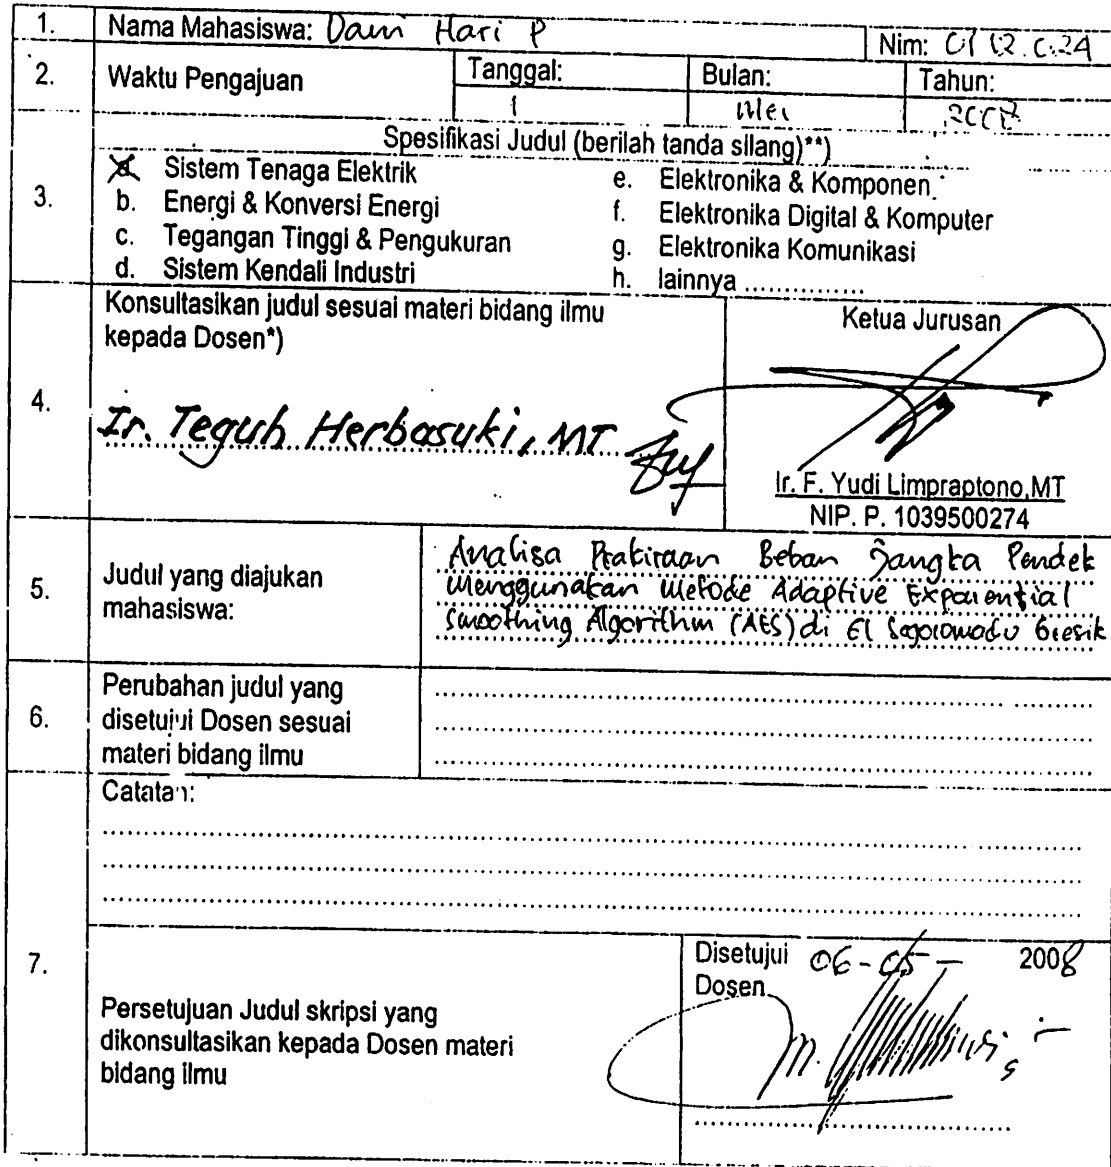 1. Nama Mahasiswa: Dami Hari P Nim: 0112.024
2. Waktu Pengajuan Tanggal: Bulan: Tahun:
1 Mei 2008
Spesifikasi Judul (berilah tanda silang)**)
3.
a. Sistem Tenaga Elektrik
b. Energi & Konversi Energi
c. Tegangan Tinggi & Pengukuran
d. Sistem Kendali Industri
e. Elektronika & Komponen
f. Elektronika Digital & Komputer
g. Elektronika Komunikasi
h. lainnya ...............
4.
Konsultasikan judul sesuai materi bidang ilmu
kepada Dosen*)
Ir. Teguh Herbasuki, MT
Ketua Jurusan
Ir. F. Yudi Limpraptono,MT
NIP. P. 1039500274
5.
Judul yang diajukan
mahasiswa:
Analisa Prakiraan Beban Jangka Pendek
Menggunakan Metode Adaptive Exponential
Smoothing Algorithm (AES) di GI Segoromadu Gresik
6.
Perubahan judul yang
disetujui Dosen sesuai
materi bidang ilmu
Catatan:
7.
Persetujuan Judul skripsi yang
dikonsultasikan kepada Dosen materi
bidang ilmu
Disetujui 06-05- 2008
Dosen